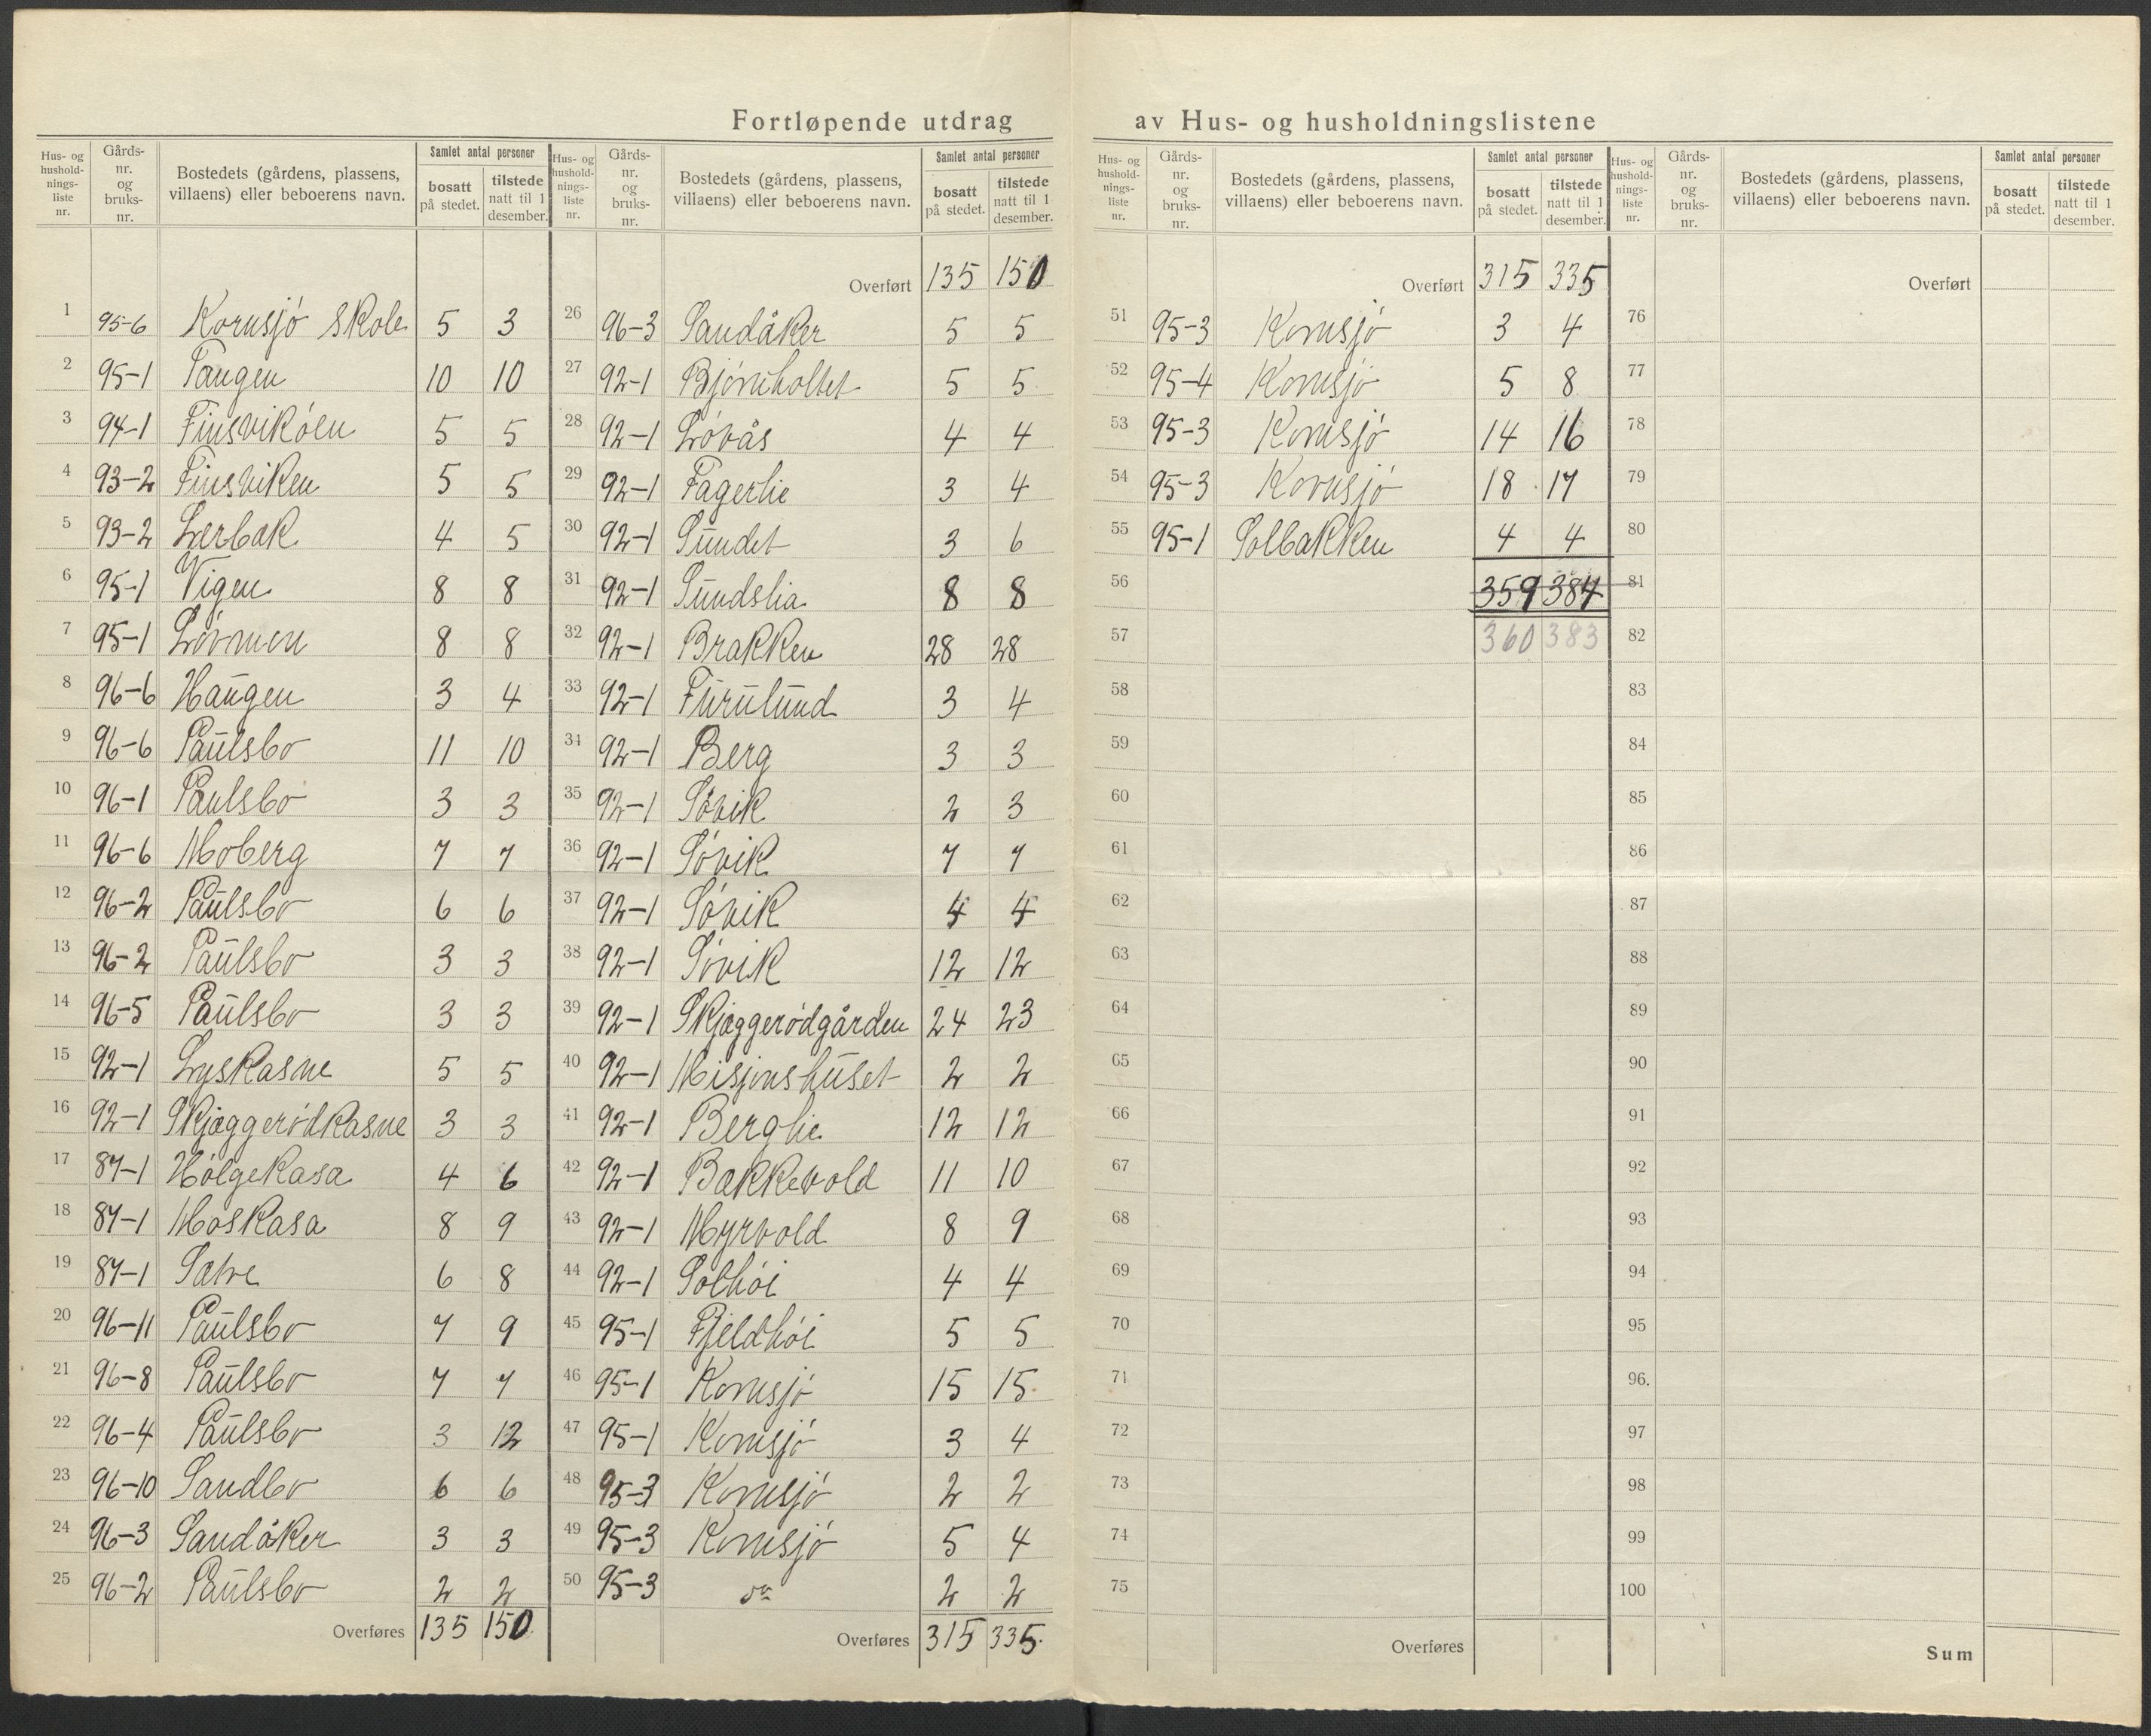 Fortløpende utdrag av Hus- og husholdningslistene
Hus- og hushold-nings-liste nr. Gårds-nr. og bruks-nr. Bostedets (gårdens, plassens, villaens) eller beboerens navn. Samlet antal personer bosatt på stedet. tilstede natt til 1 desember.
1 95-6 Kornsjö Skole 5 3
2 95-1 Tangen 10 10
3 94-1 Finsviköen 5 5
4 93-2 Finsviken 5 5
5 93-2 Lerbak 4 5
6 95-1 Vigen 8 8
7 95-1 Lövmon 8 8
8 96-6 Haugen 3 4
9 96-6 Paulsbo 11 10
10 96-1 Paulsbo 3 3
11 96-6 Moberg 7 7
12 96-2 Paulsbo 6 6
13 96-2 Paulsbo 3 3
14 96-5 Paulsbo 3 3
15 92-1 Lyskasne 5 5
16 92-1 Skjæggerödkasne 3 3
17 87-1 Hölgekasa 4 6
18 87-1 Moskasa 8 9
19 87-1 6 8
20 96-11 Paulsbo 7 9
21 96-8 Paulsbo 7 7
22 96-4 Paulsbo 3 12
23 96-10 Sandbo 6 6
24 96-3 Sandåker 3 3
25 96-2 Paulsbo 2 2
Overføres 135 150
Hus- og hushold-nings-liste nr. Gårds-nr. og bruks-nr. Bostedets (gårdens, plassens, villaens) eller beboerens navn. Samlet antal personer bosatt på stedet. tilstede natt til 1 desember.
Overført 135 150
26 96-3 Sandåker 5 5
27 92-1 Björnholtet 5 5
28 92-1 Lövås 4 4
29 92-1 Fagerlie 3 4
30 92-1 Sundet 3 6
31 92-1 Sundslia 8 8
32 92-1 Brakken 28 28
33 92-1 Furulund 3 4
34 92-1 Berg 3 3
35 92-1 Sövik 2 3
36 92-1 Sövik 7 7
37 92-1 Sövik 4 4
38 92-1 Sövik 12 12
39 92-1 Skjæggerödgården 24 23
40 92-1 Misjonshuset 2 2
41 92-1 Berglie 12 12
42 92-1 Bakkevold 11 10
43 92-1 Myrvold 8 9
44 92-1 Solhöi 4 4
45 95-1 Fjeldhöi 5 5
46 95-1 Kornsjö 15 15
47 95-1 Kornsjö 3 4
48 95-3 Kornsjö 2 2
49 95-3 Kornsjö 5 4
50 95-3 do 2 2
Overføres 315 335
Hus- og hushold-nings-liste nr. Gårds-nr. og bruks-nr. Bostedets (gårdens, plassens, villaens) eller beboerens navn. Samlet antal personer bosatt på stedet. tilstede natt til 1 desember.
Overført 315 335
51 95-3 Kornsjö 3 4
52 95-4 Kornsjö 5 8
53 95-3 Kornsjö 14 16
54 95-3 Kornsjö 18 17
55 95-1 Solbakken 4 4
56 359 384
57 360 383
58
59
60
61
62
63
64
65
66
67
68
69
70
71
72
73
74
75
Overføres
Hus- og hushold-nings-liste nr. Gårds-nr. og bruks-nr. Bostedets (gårdens, plassens, villaens) eller beboerens navn. Samlet antal personer bosatt på stedet. tilstede natt til 1 desember.
Overført
76
77
78
79
80
81
82
83
84
85
86
87
88
89
90
91
92
93
94
95
96.
97
98
99
100
Sum